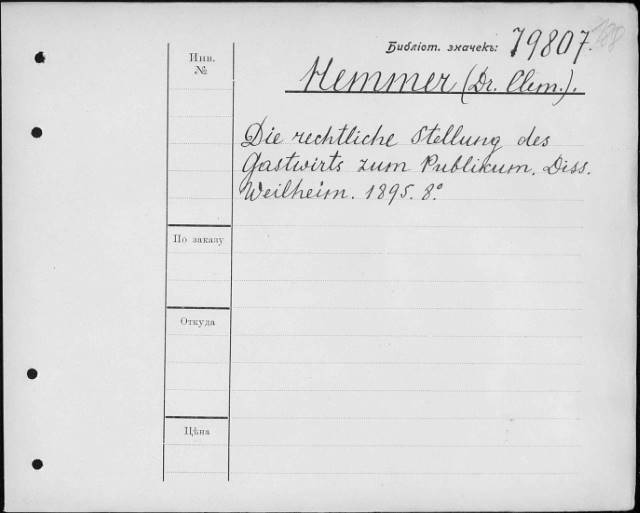 Библіот. значекъ: 79807.
Инв.
№
Hemmer (Dr. Clem.).
Die rechtliche Stellung des
Gastwirts zum Publikum. Diss.
Weilheim. 1895. 8°
По заказу
Откуда
Цѣна